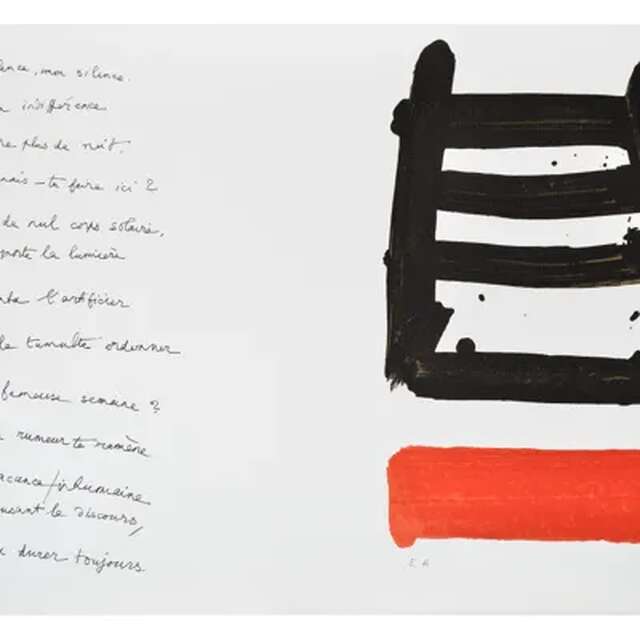 mon silence.
indifférence
plus de nuit.
-tu faire ici ?
de nul corps solaire,
porte la lumière
l'artificier
tumulte ordonner
fameuse semaine ?
rumeur te ramène
inhumaine
le discours,
durer toujours
E A